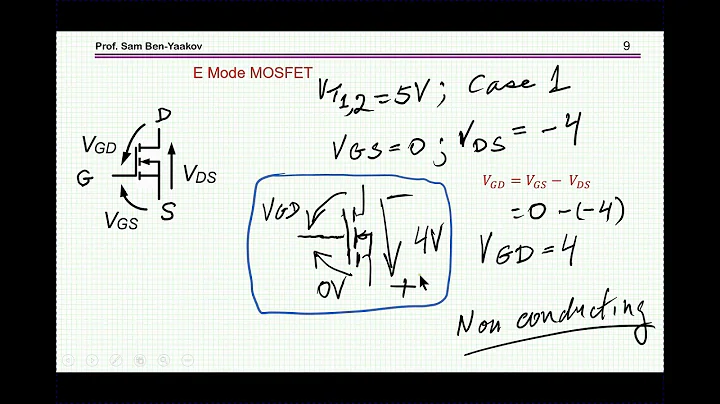 Prof. Sam Ben-Yaakov 9
E Mode MOSFET
VT1,2 = 5V; Case 1
VGS = 0; VDS = -4
D
VGD
G
VDS
VGS
S
VGD = VGS − VDS
= 0 - (-4)
VGD = 4
VGD
−
4V
0V
+
Non conducting